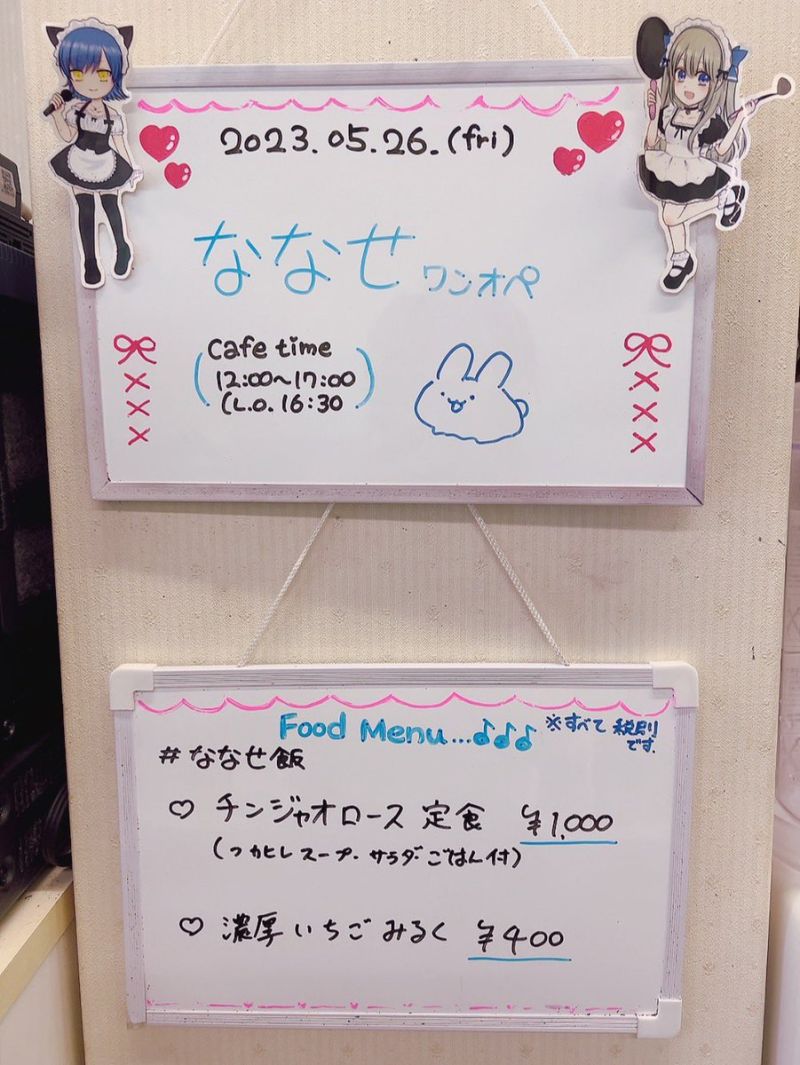 2023.05.26.(fri)
ななせ ワンオペ
Cafe time
12:00〜17:00
(L.O. 16:30
Food Menu...♪♪♪ ※すべて税別
です.
#ななせ飯
♡ チンジャオロース 定食 ¥1,000
(フカヒレスープ・サラダ・ごはん付)
♡ 濃厚いちごみるく ¥400